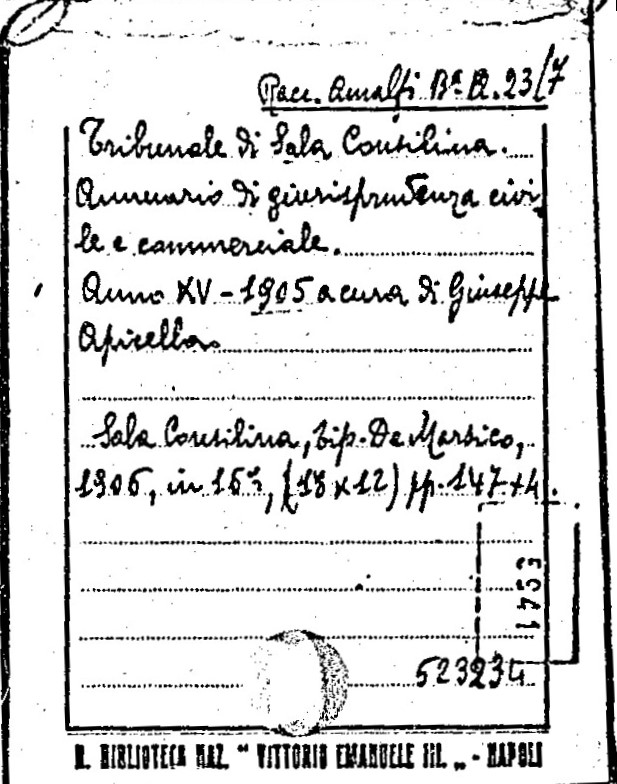 Racc. Amalfi Bª A. 23/7
Tribunale di Sala Consilina.
Annuario di giurisprudenza civi-
le e commerciale.
Anno XV - 1905 a cura di Giuseppe
Apicella.
Sala Consilina, tip. De Marsico,
1906, in 16º, (18 x 12) pp. 147 + 4.
523234
R. BIBLIOTECA NAZ. " VITTORIO EMANUELE III. „ - NAPOLI